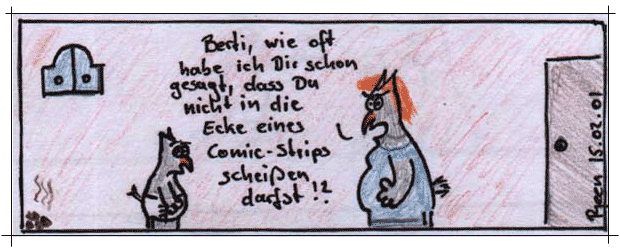 Berti, wie oft
habe ich Dir schon
gesagt, dass Du
nicht in die
Ecke eines
Comic-Strips
scheißen
darfst !?
15.02.01